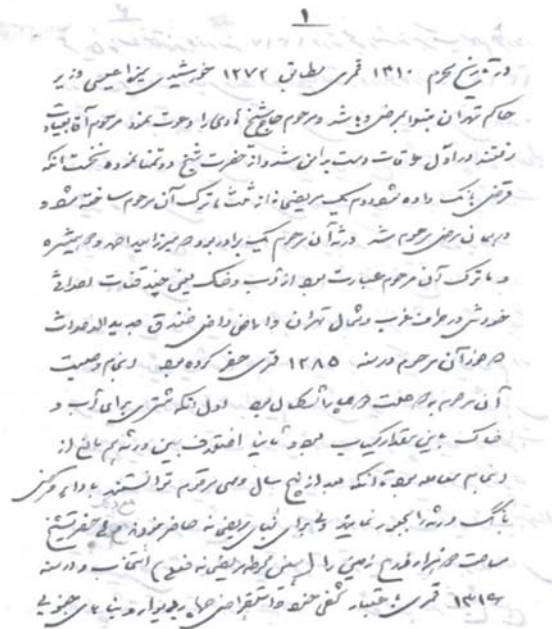 ۱
در تاریخ محرم ۱۳۱۰ قمری مطابق ۱۲۷۲ خورشیدی میرزا عیسی وزیر
حاکم تهران مبتلا بمرض وبا شد و مرحوم حاج شیخ هادی را دعوت نمود مرحوم آقا بعیادت
رفتند در اول ملاقات دست بدامن شد و از حضرت شیخ دو تمنا نموده نخست آنکه
قرض بانک داده شود دوم یک مریضخانه از ثلث ماترک آن مرحوم ساخته شود و
در همان مرض مرحوم شد ورثه آن مرحوم یک برادر بود و همشیره
و ماترک آن مرحوم عبارت بود از آب و خاک یعنی چند قنات احداثی
خودش در طرف غرب و شمال تهران و اراضی داخل خندق جدید الاحداث
که خود آن مرحوم در سنه ۱۲۸۵ قمری حفر کرده بود و انجام وصیت
آن مرحوم به جهت اشکال بود اول آنکه مشتری برای آب و
خاک باین مقدار کمیاب بود و ثانیا اختلاف بین ورثه هم مانع از
انجام معامله بود تا آنکه بعد از پنج سال وصی مرحوم توانستند بادای قرض
بانک ورثه را مجبور نمایند و برای بنای مریضخانه حاضر نمودن
مساحت ده هزار ذرع زمین را (یعنی مریضخانه فعلی) انتخاب و در سنه
۱۳۱۶ قمری و دیوار و بنای جنوبی